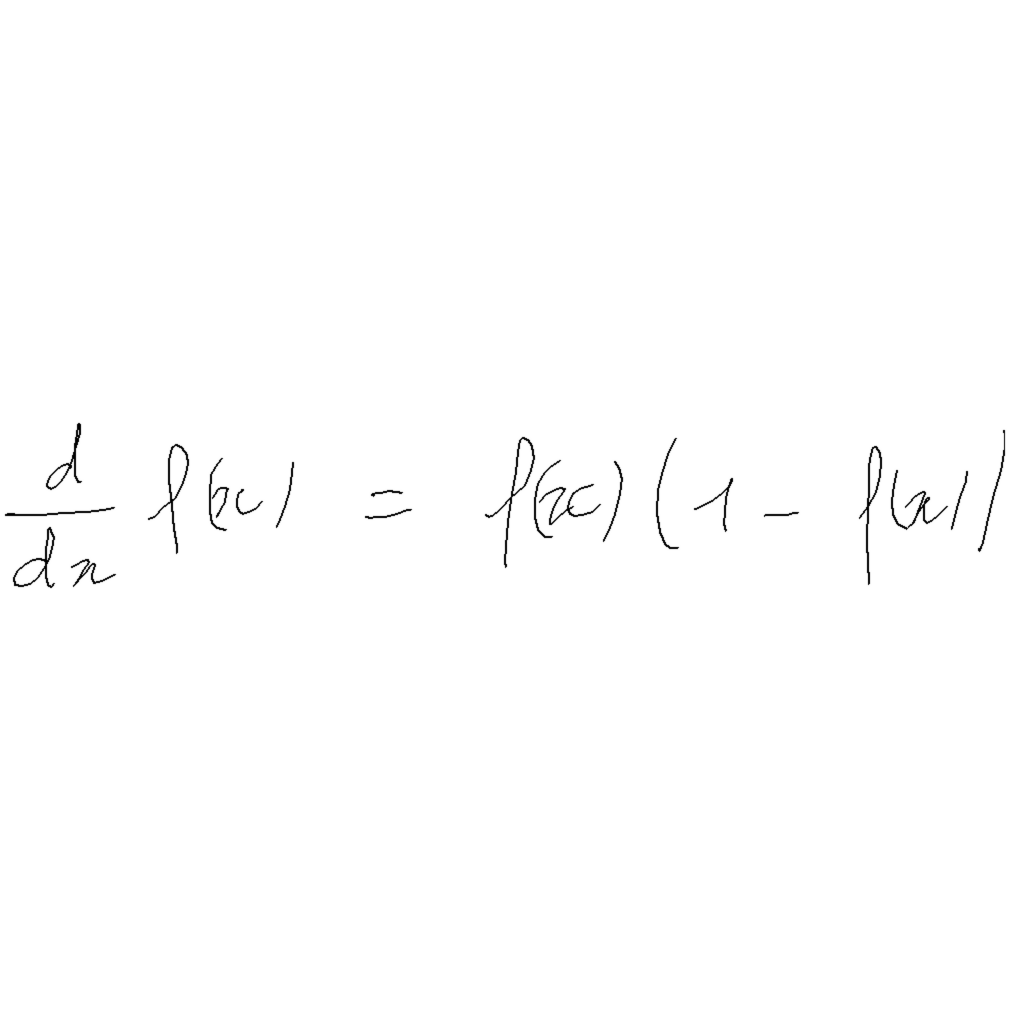 d/dx f(x) = f(x) (1 - f(x))